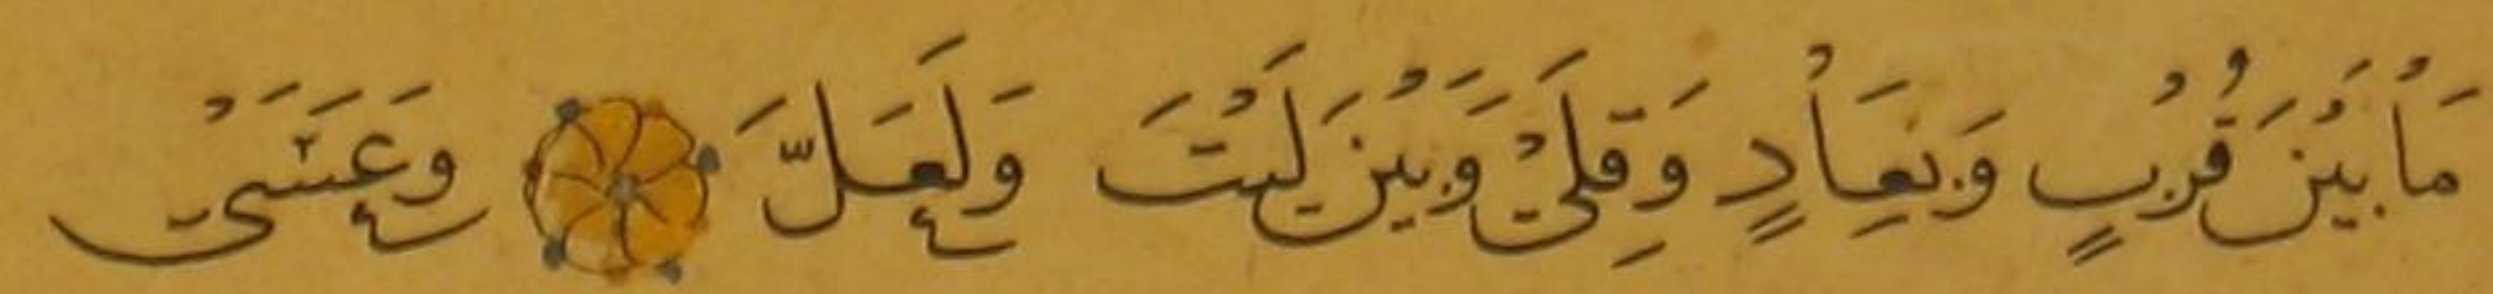 مَاْ بَيْنَ قُرْبٍ وَبِعَاْدٍ وَقِلَىْ وَبَيْنَ لَيْتَ وَلَعَلَّ وَعَسَىْ